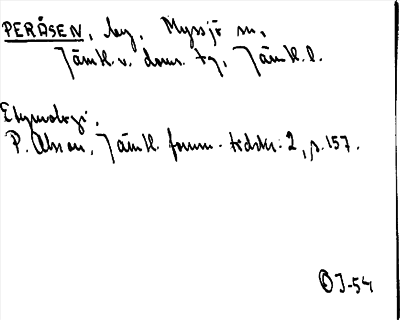 PERÅSEN, by, Myssjö sn,
Jämtl. v. doms. tg, Jämtl. l.
Etymologi.
P. Olsson, Jämtl. fornm. tidskr. 2, s. 157.
OJ-54